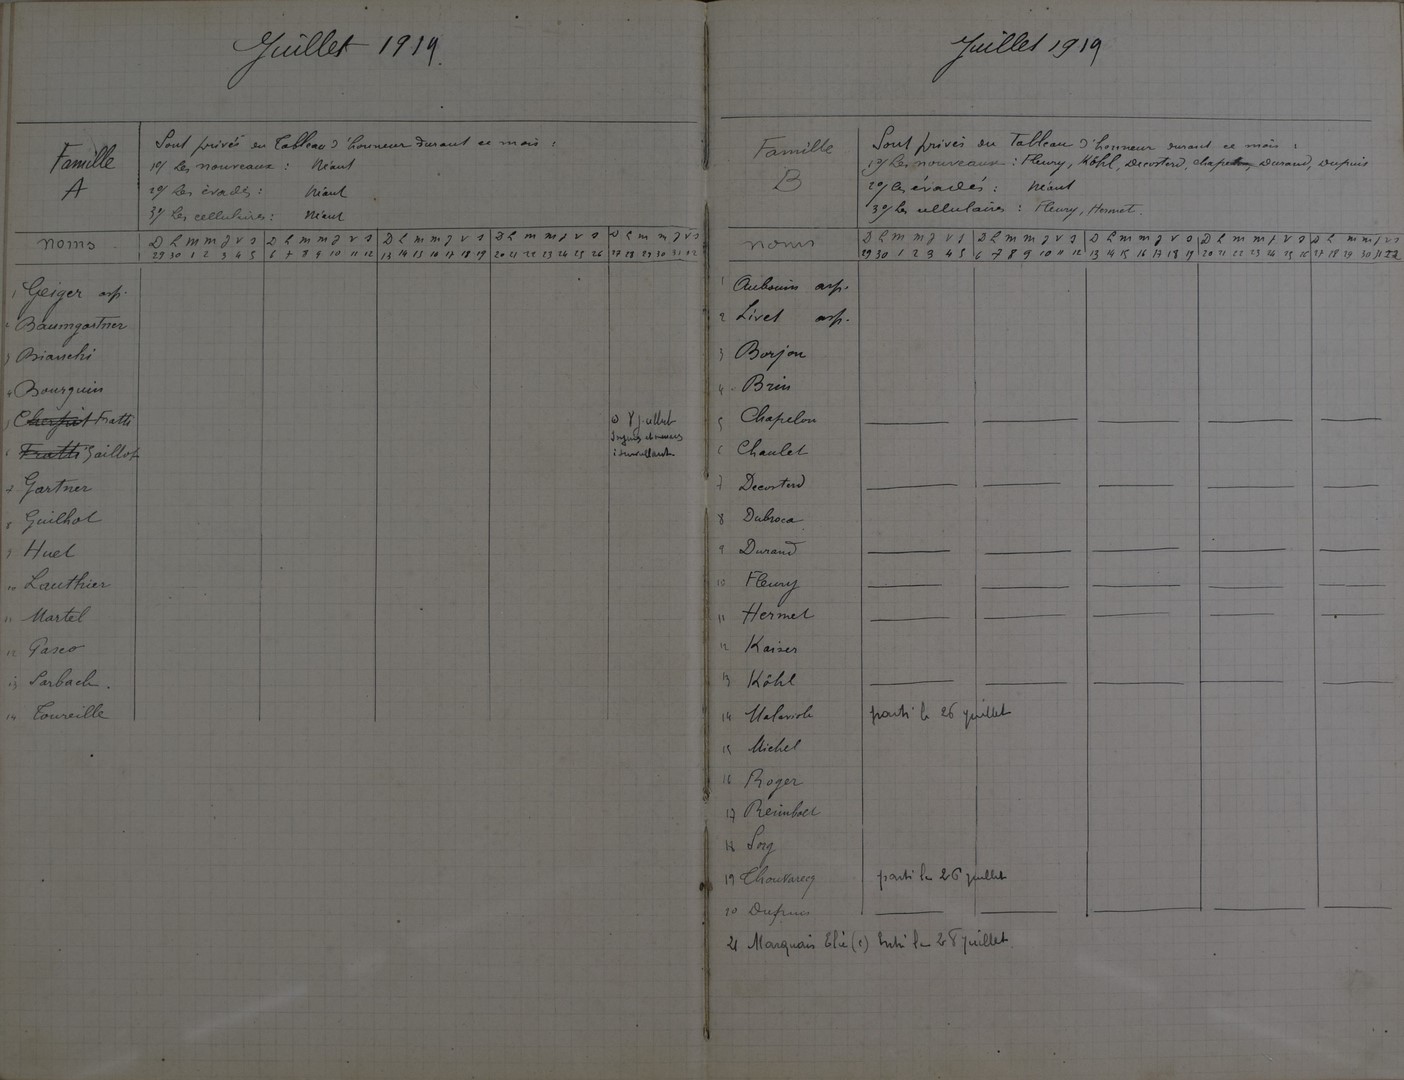 Juillet 1919
Famille
A
Sont privés du Tableau d'honneur durant ce mois :
1º/ Les nouveaux : Néant
2º/ Les évadés : Néant
3º/ Les cellulaires : Néant
noms
D L m m J V S D L m m J V S D L m m J V S D L m m J V S D L m m J V S
29 30 1 2 3 4 5 6 7 8 9 10 11 12 13 14 15 16 17 18 19 20 21 22 23 24 25 26 27 28 29 30 31 1 2
1 Geiger asp.
2 Baumgartner
3 Bianchi
4 Bourguin
5 Fratti
6 Fratti Gaillot
7 Gartner
8 Guilhot
9 Huet
10 Lauthier
11 Martel
12 Pasco
13 Sarbach.
14 Toureille
Juillet 1919
Famille
B
Sont privés du Tableau d'honneur durant ce mois :
1º/ Les nouveaux : Fleury, Köhl, Decosterd, Chapelon, Durand, Dupuis
2º/ Les évadés : Néant
3º/ Les cellulaires : Fleury, Hermet.
noms
D L m m J V S D L m m J V S D L m m J V S D L m m J V S D L m m J V S
29 30 1 2 3 4 5 6 7 8 9 10 11 12 13 14 15 16 17 18 19 20 21 22 23 24 25 26 27 28 29 30 31 1 2
1 Aubouin asp.
2 Livet asp.
3 Borjon
4 Brin
5 Chapelon
6 Chaulet
7 Decosterd
8 Dubroca
9 Durand
10 Fleury
11 Hermet
12 Kaiser
13 Köhl
14 parti le 26 juillet
15 Michel
16 Roger
17 Reimbolt
18 Sorg
19 parti le 26 juillet
20 Dupuis
21 Marquais Elie (e) Entré le 28 juillet.